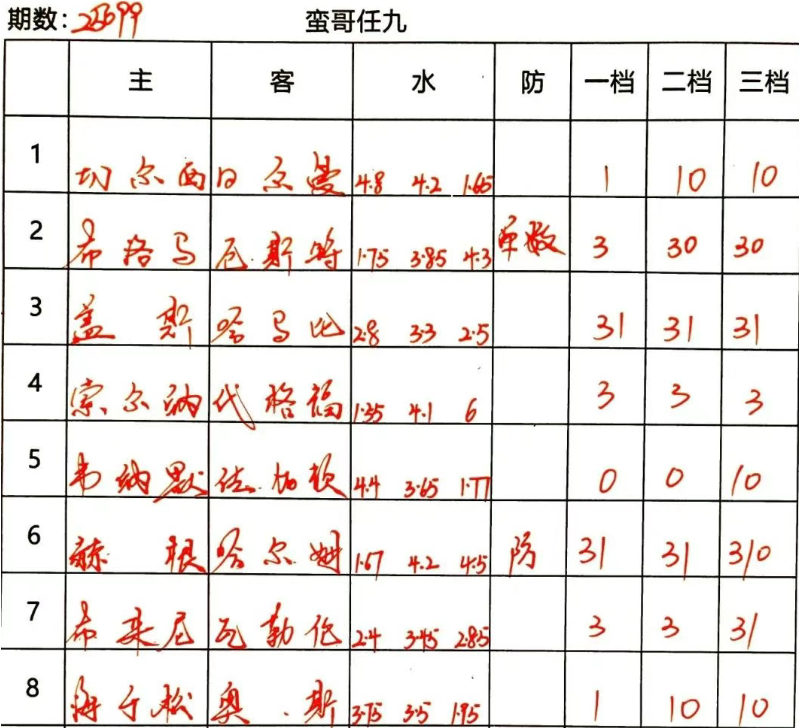 期数: 25099 蛮哥任九
主 客 水 防 一档 二档 三档
1 切尔西 日尔曼 4.8 4.2 1.65 1 10 10
2 希洛马 瓦斯特 1.75 3.85 4.3 单数 3 30 30
3 盖斯 哈马比 2.8 3.3 2.5 31 31 31
4 索尔纳 代格福 1.35 4.1 6 3 3 3
5 韦纳默 佐加顿 4.4 3.65 1.77 0 0 10
6 赫根 哈尔姆 1.67 4.2 4.5 防 31 31 310
7 布来尼 瓦勒伦 2.4 3.45 2.85 3 3 31
8 海于松 奥斯 3.75 3.5 1.95 1 10 10